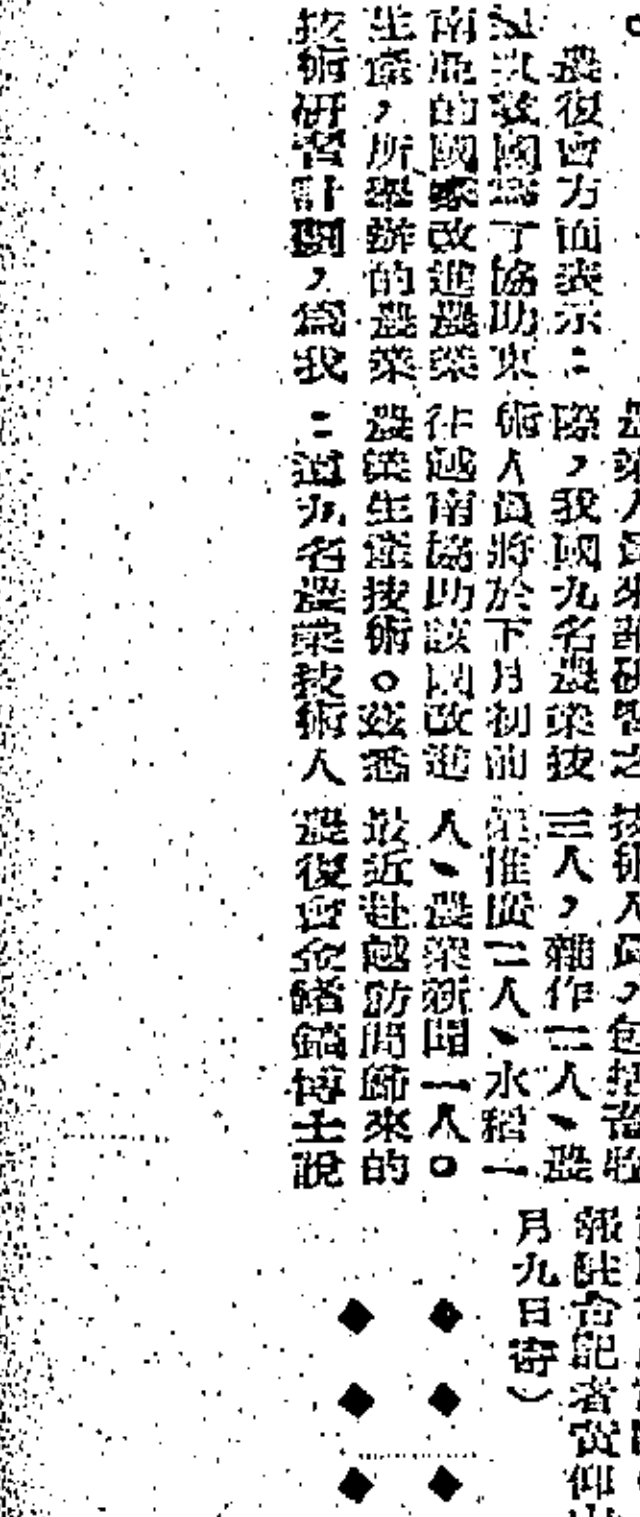 農復會方面表示：
這次我國為了協助東
南亞的國家改進農業
生產，所舉辦的農業
技術研習計劃，為我
農業人員來華研習之
際，我國九名農業技
術人員將於下月初前
往越南協助該國改進
農業生產技術。茲悉
：這九名農業技術人
技術人員，包括畜牧
三人，雜作二人、農
業推廣二人、水稻一
人、農業新聞一人。
最近赴越訪問歸來的
農復會金緒鎬博士說
報駐台記者黃仰山
月九日寄）